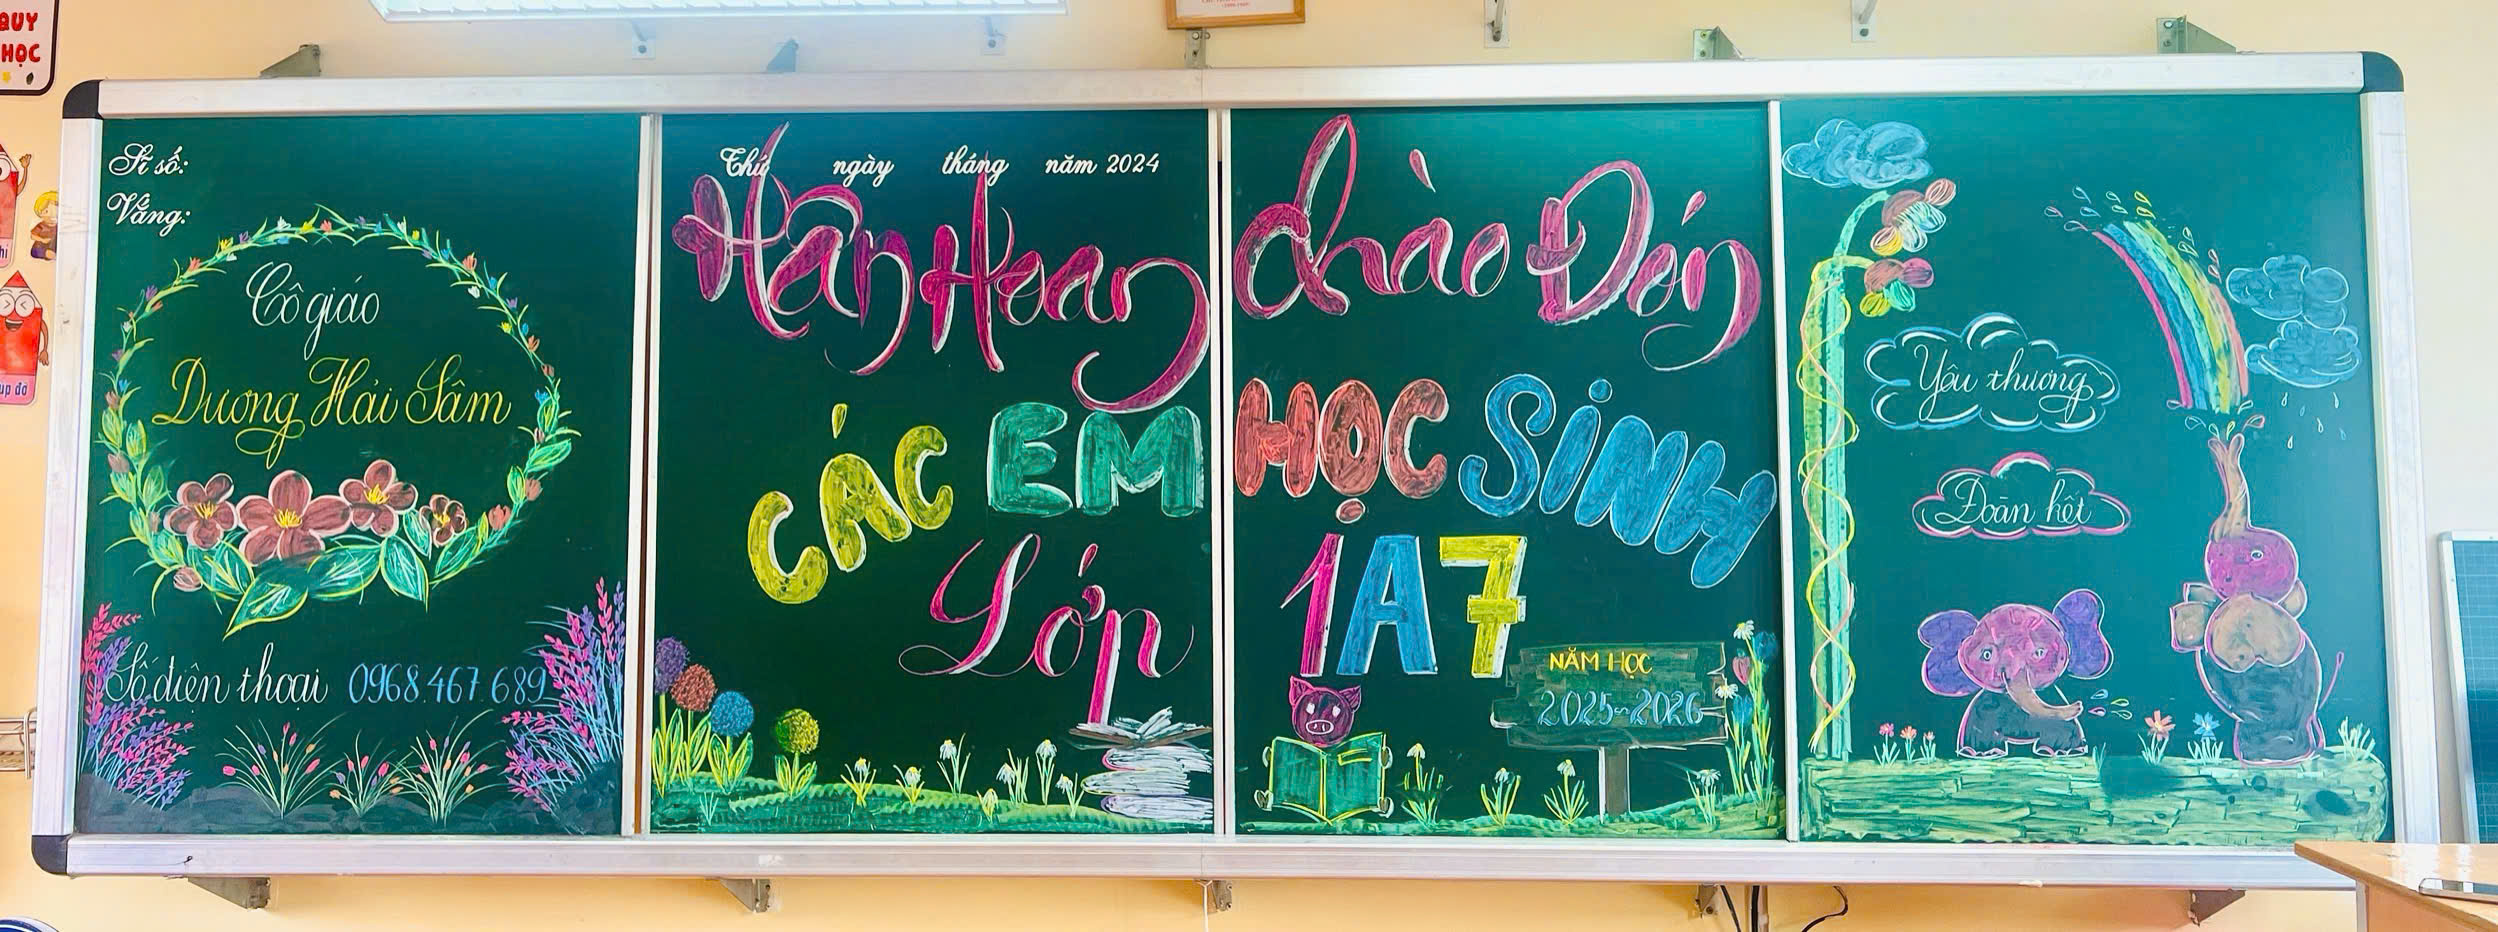 QUY
HỌC
Sĩ số:
Vắng:
Cô giáo
Dương Hải Sâm
Số điện thoại 0968.467.689
Thứ ngày tháng năm 2024
Hân Hoan Chào Đón
CÁC EM HỌC SINH
Lớp 1A7
NĂM HỌC
2025-2026
Yêu thương
Đoàn kết